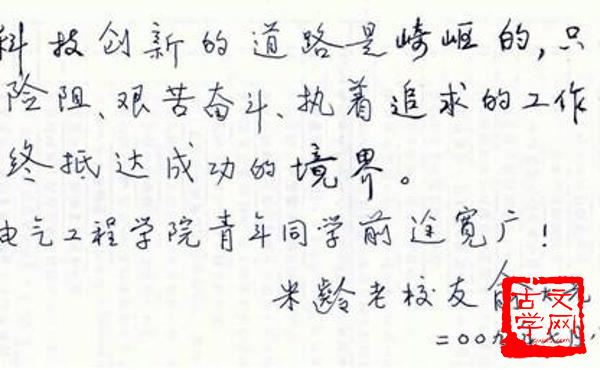 科技创新的道路是崎岖的,只
险阻、艰苦奋斗、执着追求的工作
终抵达成功的境界。
电气工程学院青年同学前途宽广!
米龄老校友俞
二00九
古文
学网